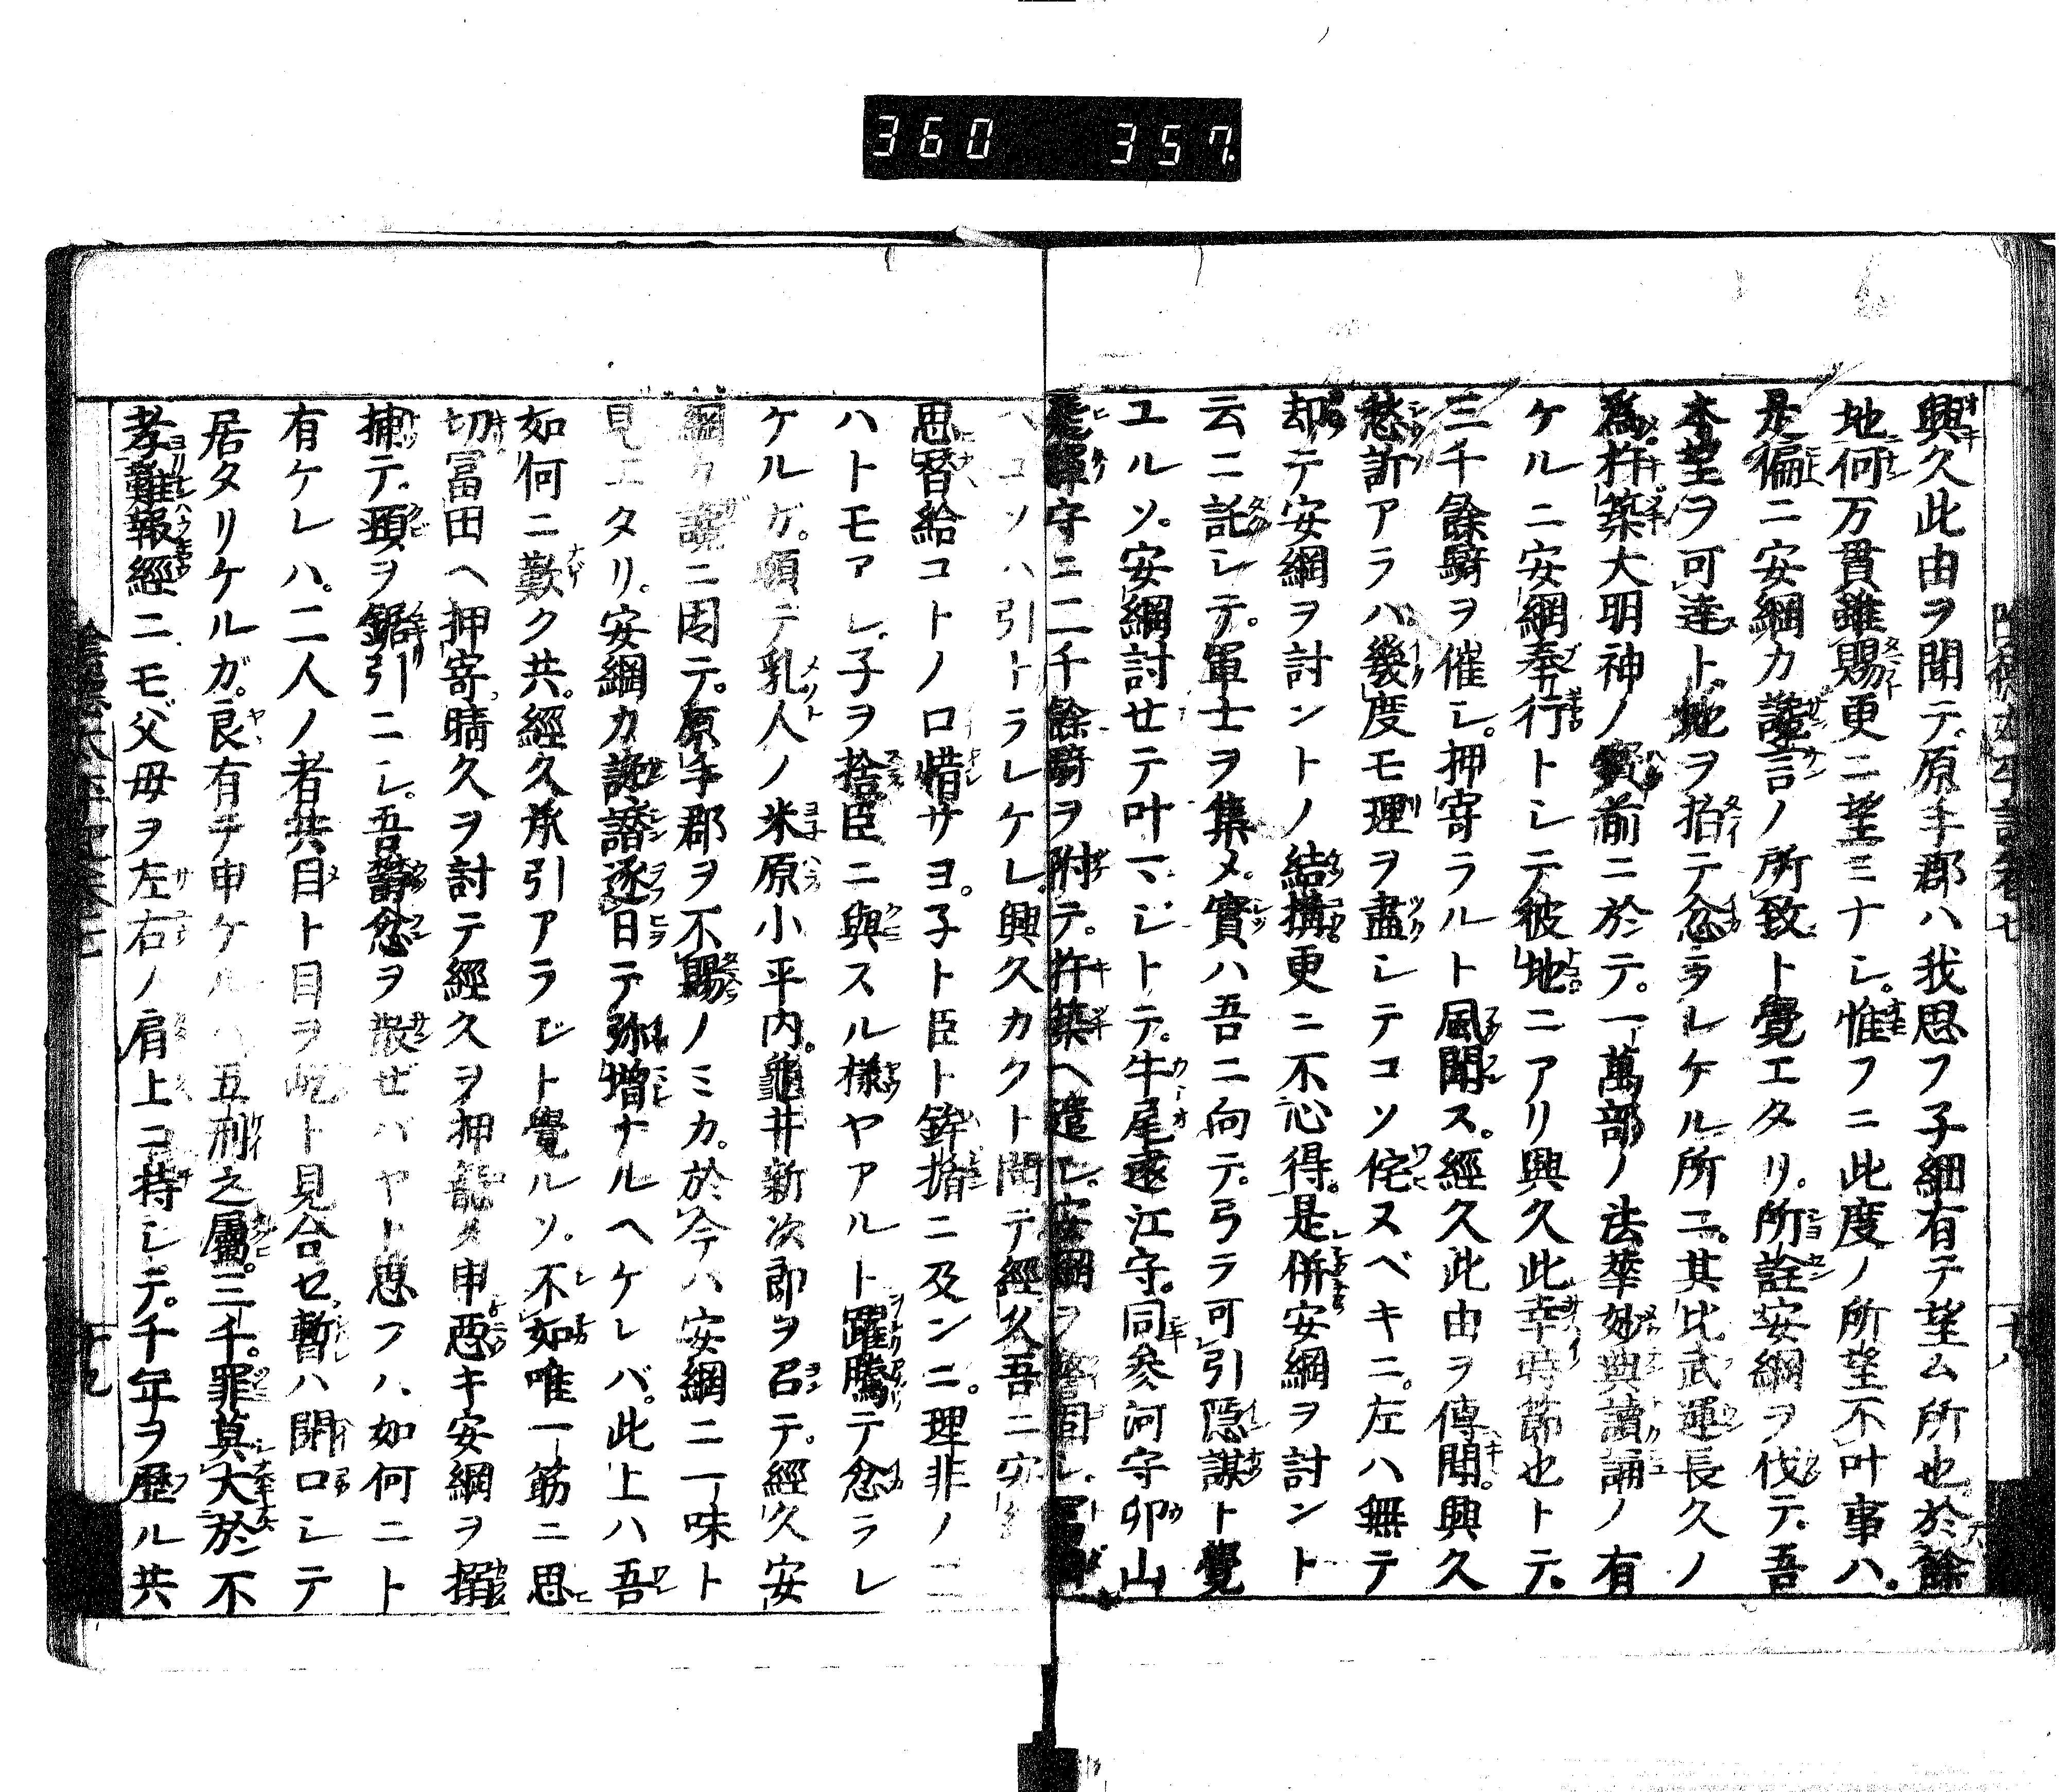 360 357.
興久此由ヲ聞テ。原手郡ハ我思フ子細有テ望ム所也。於餘
地何万貫雖賜更ニ望ミナシ。惟フニ此度ノ所望不叶事ハ。
是偏ニ安綱カ讒言ノ所致ト覺エタリ。所詮安綱ヲ伐テ。吾
本望ヲ可達ト。地ヲ拍テ忿ラレケル所ニ。其比武運長久ノ
為。杵築大明神ノ寳前ニ於テ。一萬部ノ法華妙典讀誦ノ有
ケルニ安綱奉行トシテ彼地ニアリ興久此幸時節也トテ。
三千餘騎ヲ催シ。押寄ラルト風聞ス。經久此由ヲ傳聞。興久
愁訴アラハ。幾度モ理ヲ盡シテコソ侘ヌベキニ。左ハ無テ
却テ安綱ヲ討ントノ結搆更ニ不心得。是併安綱ヲ討ント
云ニ託シテ。軍士ヲ集メ。實ハ吾ニ向テ。弓ラ可引隠謀ト覺
ユルソ。安綱討セテ叶マジトテ。牛尾遠江守。同参河守卯山
飛騨守ニ二千餘騎ヲ附テ。杵築ヘ遣シ。安綱ヲ警固シ。冨田
ヘコソハ引トラレケレ。興久カクト聞テ經久吾ニ安
思替給コトノ口惜サヨ。子ト臣ト鉾揩ニ及ンニ。理非ノニ
ハトモアレ。子ヲ捨臣ニ與スル様ヤアルト躍騰テ忿ラレ
ケルガ。頓テ乳人ノ米原小平内。龜井新次郎ヲ召テ。經久安
綱カ讒ニ因テ。原手郡ヲ不賜ノミカ。於今ハ安綱ニ一味ト
見エタリ。安綱カ讒譖逐日テ弥増ナルヘケレバ。此上ハ吾
如何ニ歎ク共。經久承引アラジト覺ルソ。不如唯一筋ニ思
切冨田ヘ押寄。晴久ヲ討テ經久ヲ押籠メ申悪キ安綱ヲ搦
捕テ。頸ヲ鋸引ニシ。吾欝忿ヲ散ゼバヤト思フハ。如何ニト
有ケレハ。二人ノ者共目ト目ヲ屹ト見合セ。暫ハ閉口シテ
居タリケルガ。良有テ申ケルハ五刑之屬。三千。罪莫大於不
孝難報經ニモ。父母ヲ左右ノ肩上ニ持シテ。千年ヲ歴ル共
十八
十九